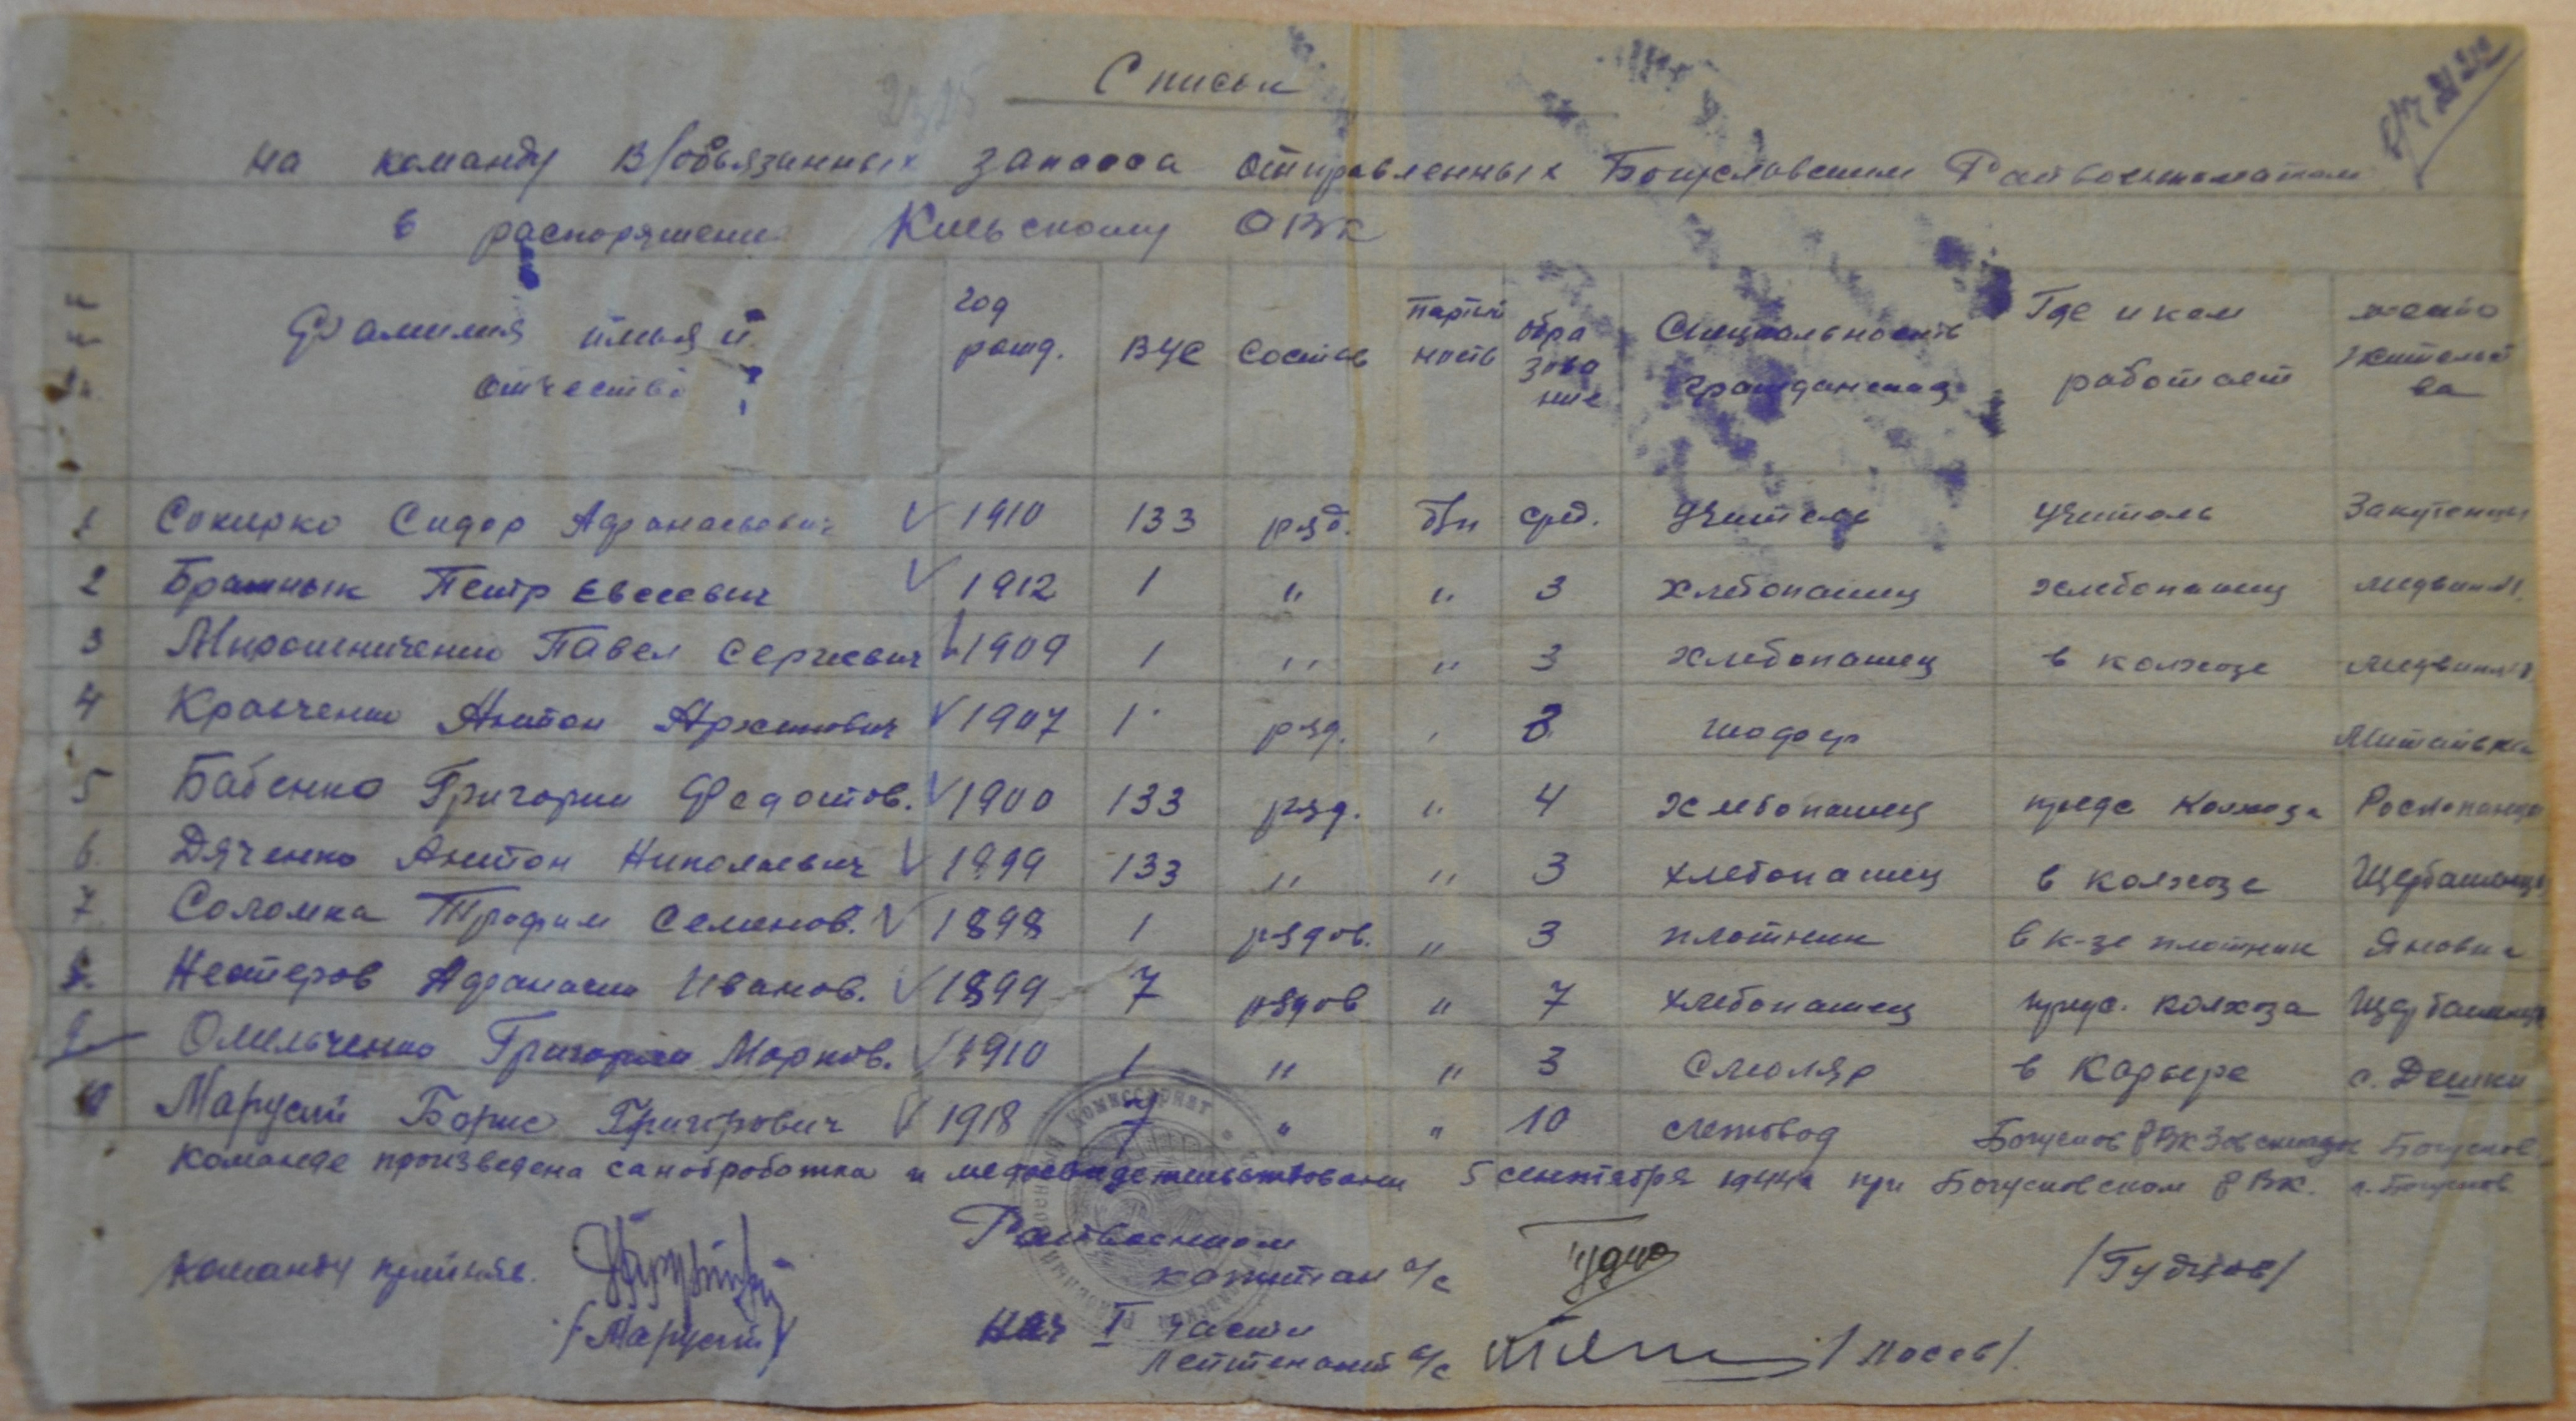 Список
на команду В/обьязанных запаса отправленных Богуславским Райвоенкоматом
в распоряжени Киевскому ОВК
Фамилия имья и отчество год рожд. ВУС Состав партий ность обра зова ние Специальность гражданская Где и кем работает место жительст ва
1 Сокирко Сидор Афанасьевич V 1910 133 ряд. б/п сред. Учитель учитель Закутенцы
2 Братнык Петр Евсеевич V 1912 1 " " 3 хлебопашец хлебопашец Медвин
3 Мирошниченко Павел Сергиевич V 1909 1 " " 3 хлебопашец в колхозе Медвин
4 Кравченко Антон Архипович V 1907 1 ряд. " 3 шофер Митаевка
5 Бабенко Григории Федотов. V 1900 133 ряд. " 4 хлебопашец пред колхоза
6. Дяченко Антон Николаевич V 1899 133 " " 3 хлебопашец в колхозе Щербашенцы
7. Соломка Трофим Семенов. V 1898 1 рядов. " 3 плотник в к-зе плотник Яновка
8. Нестеров Афанасии Иванов. V 1899 7 рядов " 7 хлебопашец колхоза Щербашенцы
9. Омельченко Григории Марков. V 1910 1 " " 3 столяр в Карьере с. Дешки
10 Марусий Борис Григорович V 1918 7 " " 10 Богуслов РВК Зав складом Богуслов
Команде произведена саноброботка и медосвидетельствовани 5 сентября 1944г при Богуславском РВК. г. Богуслов
Команду принял. Райвоенком
капитан а/с /Губцов/
/Марусий/ Нач I части
Лейтенант а/с /Лосев/.